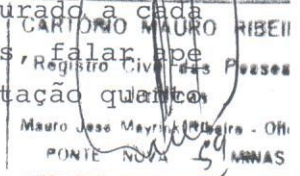 urado a cada
CARTÓRIO MAURO RIBEI
s, falar ape
Registro Civil das Pessoa
tação quanto
Mauro José Mayrink Ribeiro - Ofi
PONTE NOVA MINAS